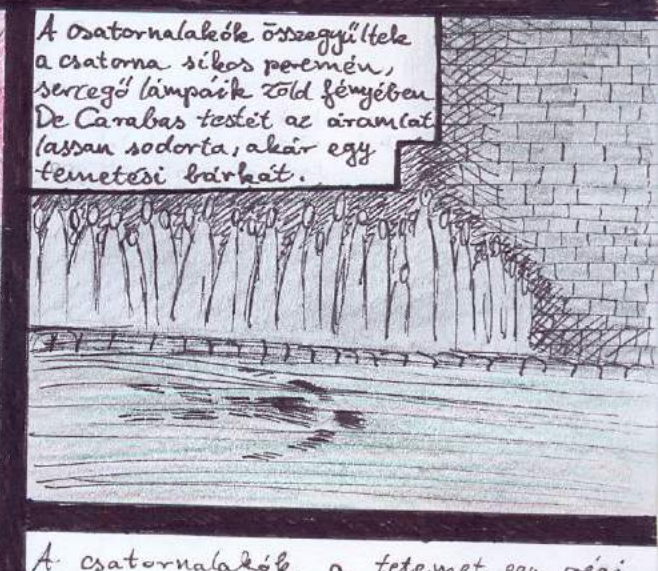 A csatornalakók összegyűltek
a csatorna síkos peremén,
sercegő lámpáik zöld fényében
De Carabas testét az áramlat
lassan sodorta, akár egy
temetési bárkát.
A csatornalakók a tetemet egy régi